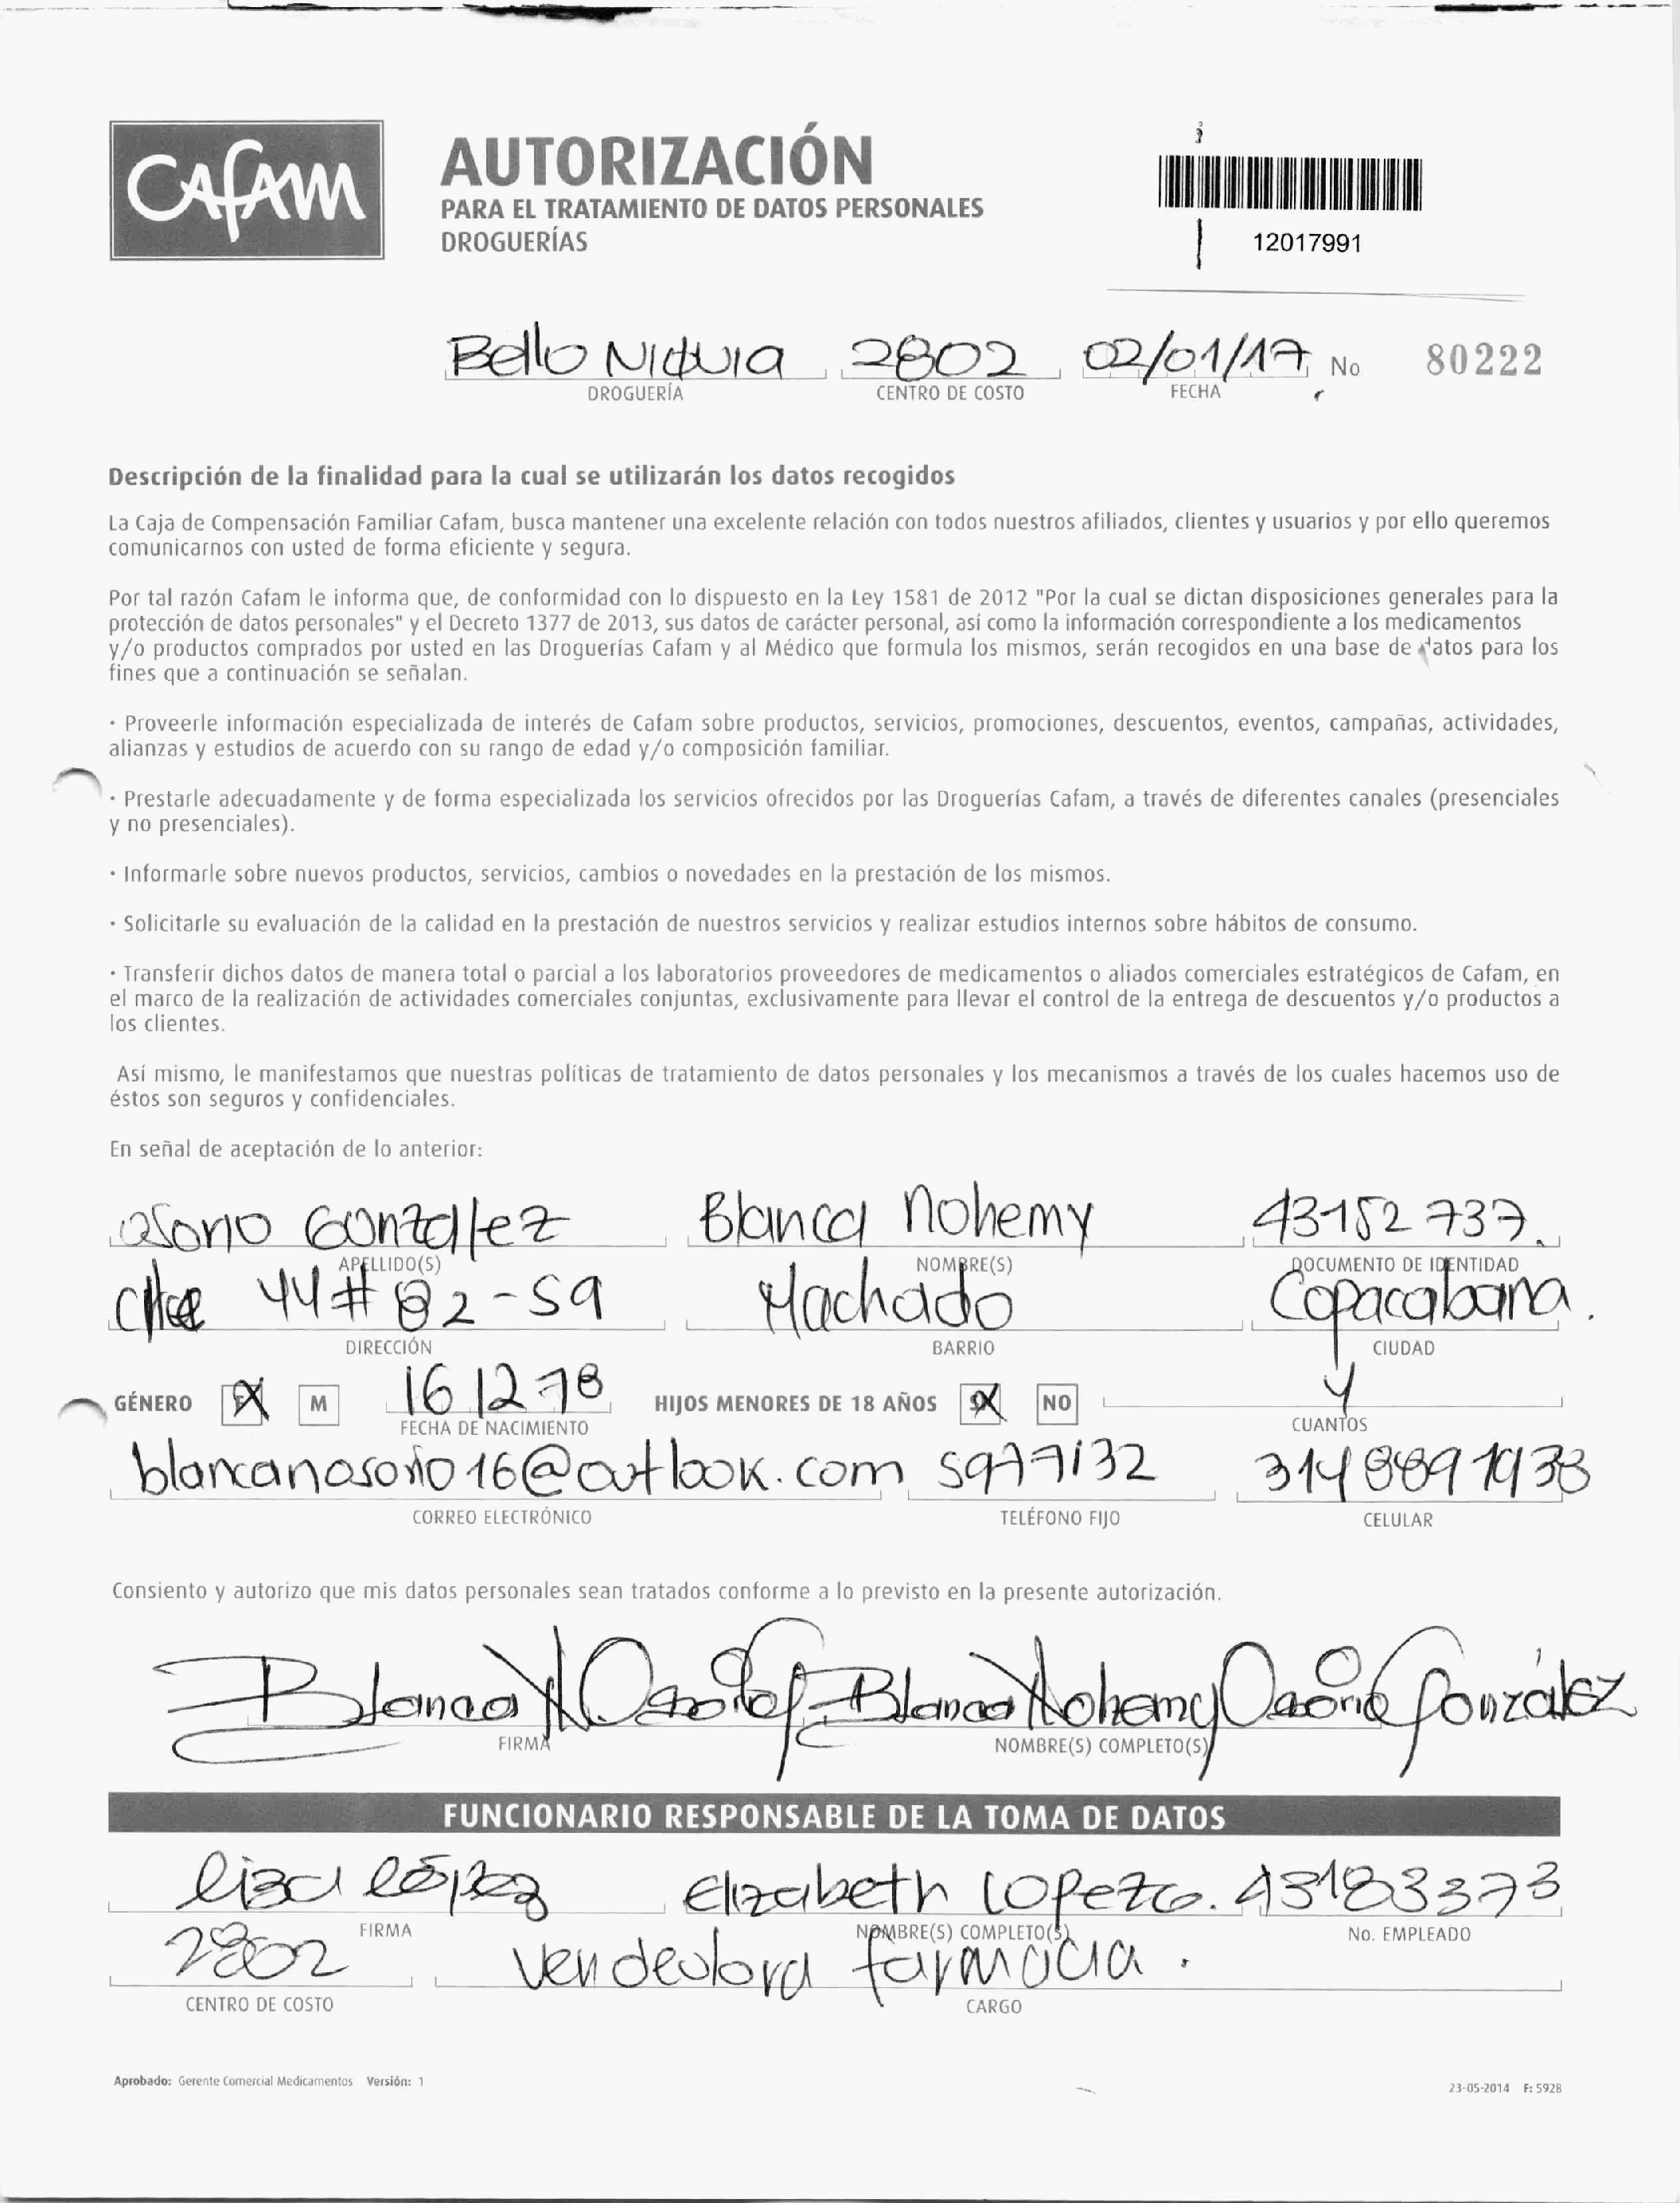 CAFAM
AUTORIZACIÓN
PARA EL TRATAMIENTO DE DATOS PERSONALES
DROGUERÍAS
12017991
Bello Niquia 2802 02/01/17 No 80222
DROGUERÍA CENTRO DE COSTO FECHA
Descripción de la finalidad para la cual se utilizarán los datos recogidos
La Caja de Compensación Familiar Cafam, busca mantener una excelente relación con todos nuestros afiliados, clientes y usuarios y por ello queremos
comunicarnos con usted de forma eficiente y segura.
Por tal razón Cafam le informa que, de conformidad con lo dispuesto en la Ley 1581 de 2012 "Por la cual se dictan disposiciones generales para la
protección de datos personales" y el Decreto 1377 de 2013, sus datos de carácter personal, así como la información correspondiente a los medicamentos
y/o productos comprados por usted en las Droguerías Cafam y al Médico que formula los mismos, serán recogidos en una base de datos para los
fines que a continuación se señalan.
· Proveerle información especializada de interés de Cafam sobre productos, servicios, promociones, descuentos, eventos, campañas, actividades,
alianzas y estudios de acuerdo con su rango de edad y/o composición familiar.
· Prestarle adecuadamente y de forma especializada los servicios ofrecidos por las Droguerías Cafam, a través de diferentes canales (presenciales
y no presenciales).
· Informarle sobre nuevos productos, servicios, cambios o novedades en la prestación de los mismos.
· Solicitarle su evaluación de la calidad en la prestación de nuestros servicios y realizar estudios internos sobre hábitos de consumo.
· Transferir dichos datos de manera total o parcial a los laboratorios proveedores de medicamentos o aliados comerciales estratégicos de Cafam, en
el marco de la realización de actividades comerciales conjuntas, exclusivamente para llevar el control de la entrega de descuentos y/o productos a
los clientes.
Así mismo, le manifestamos que nuestras políticas de tratamiento de datos personales y los mecanismos a través de los cuales hacemos uso de
éstos son seguros y confidenciales.
En señal de aceptación de lo anterior:
osorio Gonzalez Blanca Nohemy 43152737.
APELLIDO(S) NOMBRE(S) DOCUMENTO DE IDENTIDAD
44 # 82-59 Machado Copacabana.
DIRECCIÓN BARRIO CIUDAD
GÉNERO F M 161278 HIJOS MENORES DE 18 AÑOS SI NO 4
FECHA DE NACIMIENTO CUANTOS
blancanosorio16@outlook.com 5977132 3148891938
CORREO ELECTRÓNICO TELÉFONO FIJO CELULAR
Consiento y autorizo que mis datos personales sean tratados conforme a lo previsto en la presente autorización.
Blanca N Osorio G Blanca Nohemy Osorio González
FIRMA NOMBRE(S) COMPLETO(S)
FUNCIONARIO RESPONSABLE DE LA TOMA DE DATOS
liza lópez Elizabeth Lopez G. 43183373
FIRMA NOMBRE(S) COMPLETO(S) No. EMPLEADO
2802 Vendedora farmacia.
CENTRO DE COSTO CARGO
Aprobado: Gerente Comercial Medicamentos Versión: 1
23-05-2014 F: 5928